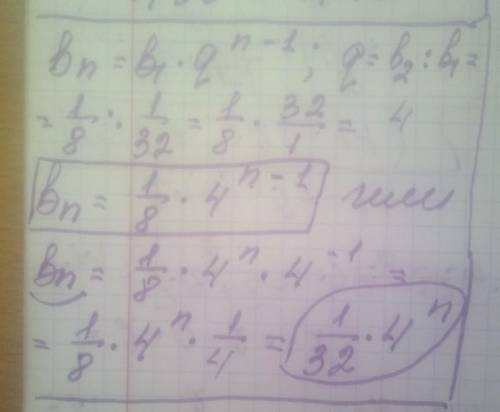 bₙ = b₁ · q^(n-1); q = b₂ : b₁ =
= 1/8 : 1/32 = 1/8 · 32/1 = 4
bₙ = 1/8 · 4^(n-1) или
bₙ = 1/8 · 4^n · 4^(-1) =
= 1/8 · 4^n · 1/4 = 1/32 · 4^n